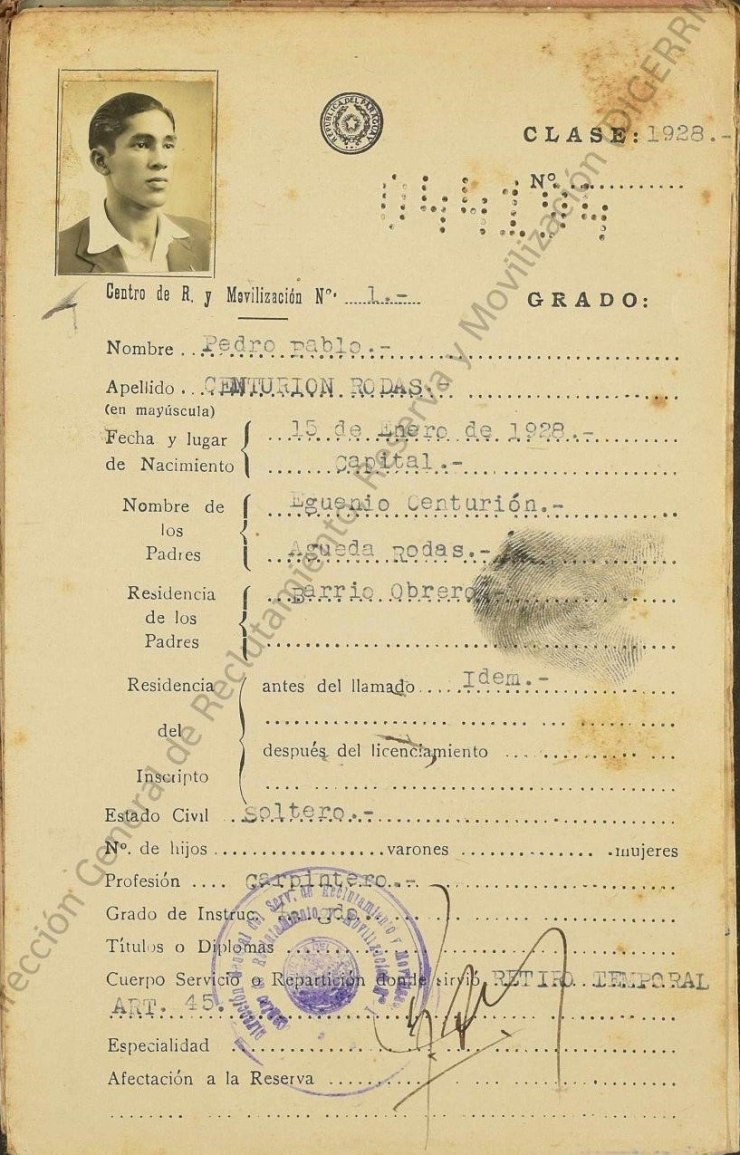 REPUBLICA DEL PARAGUAY
CLASE: 1928.-
Nº
Centro de R. y Movilización Nº. 1.-
GRADO:
Nombre Pedro Pablo.-
Apellido CENTURION RODAS.-
(en mayúscula)
Fecha y lugar de Nacimiento 15 de Enero de 1928.-
Capital.-
Nombre de los Padres Eguenio Centurión.-
Agueda Rodas.-
Residencia de los Padres Barrio Obrero.-
Residencia del Inscripto antes del llamado Idem.-
después del licenciamiento
Estado Civil soltero.-
Nº. de hijos varones mujeres
Profesión carpintero.-
Grado de Instruc.
Títulos o Diplomas
Cuerpo Servicio o Repartición donde sirvió RETIRO TEMPORAL
ART. 45.
Especialidad
Afectación a la Reserva
Dirección General de Reclutamiento, Reserva y Movilización (DIGERRMOV